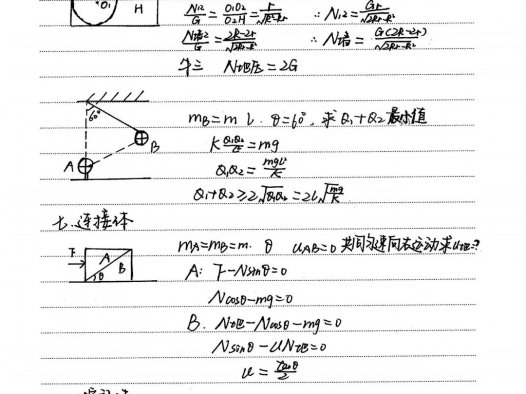 O₁ H
N₁₂/G = O₁O₂/O₂H = r/√(2Rr-R²) ∴ N₁₂ = Gr/√(2Rr-R²)
N墙₂/G = (2R-2r)/√(2Rr-R²) ∴ N墙 = G(2R-2r)/√(2Rr-R²)
牛三 N地压 = 2G
60°
A
B
m_B = m l. θ=60°, 求 Q₁+Q₂ 最小值
K Q₁Q₂/l² = mg
Q₁Q₂ = mgl²/K
Q₁+Q₂ ≥ 2√(Q₁Q₂) = 2l√(mg/K)
七. 连接体
F A B θ
m_A=m_B=m. θ u_AB=0 共同匀速向右运动求u地=?
A: F-Nsinθ=0
Ncosθ-mg=0
B. N地-Ncosθ-mg=0
Nsinθ-uN地=0
u = tanθ/2